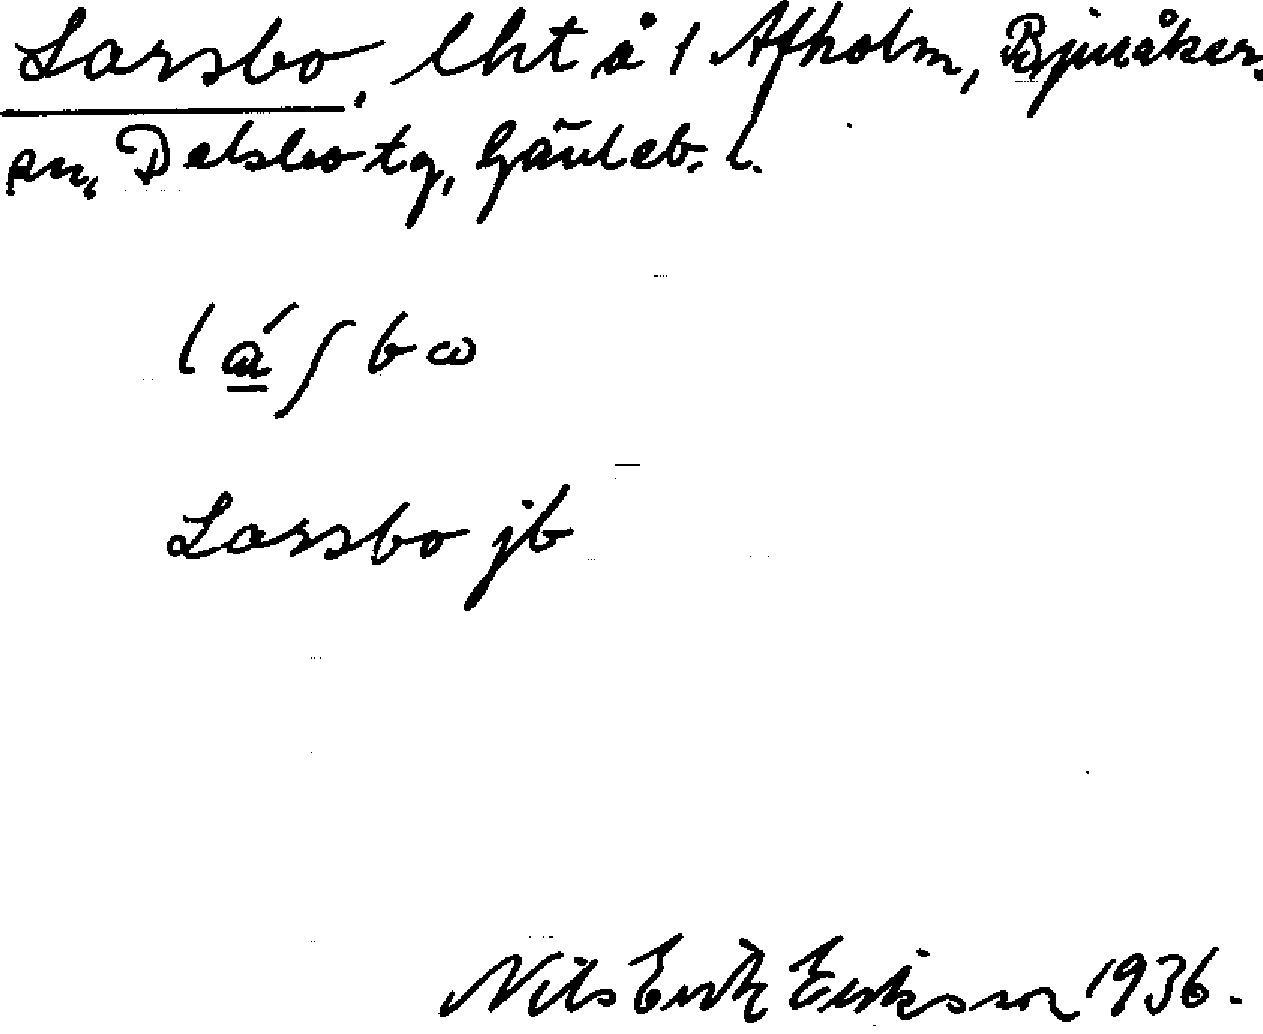 Larsbo, lht å 1 Afholm, Bjuråker
sn, Delsbo tg, Gävleb. l.
lá̱ʃbω
Larsbo jb
Nils Erik Eriksson 1936.